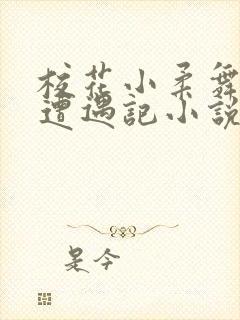 校花小柔舞
遭遇记小说
是今